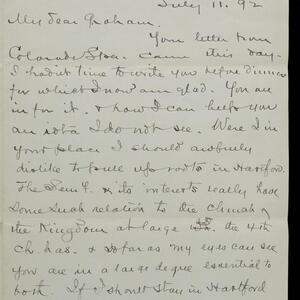 July 11. 92
My dear Graham.
Your letter from
Colorado Spa. came this day.
I hadn't time to write you before dinner
for which I now am glad. You are
in for it. & how I can help you
an iota I do not see. Were I in
your place I should awfully
dislike to pull up roots in Hartford.
The Sem'y & its interests really have
some such relation to the Church &
the Kingdom at large the 4th
Ch. has. & so far as my eyes can see
you are in a large degree essential to
both. If I should stay in Hartford